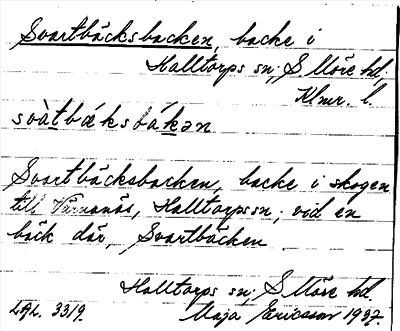 Svartbäcksbacken, backe i
Halltorps sn; S Möre hd;
Klmr. l.
svàt̲bæksbák̲ən
Svartbäcksbacken, backe i skogen
till Värnanäs, Halltorps sn; vid en
bäck där, Svartbäcken.
Halltorps sn; S Möre hd.
LAL. 3319. Maja Ericson 1937.